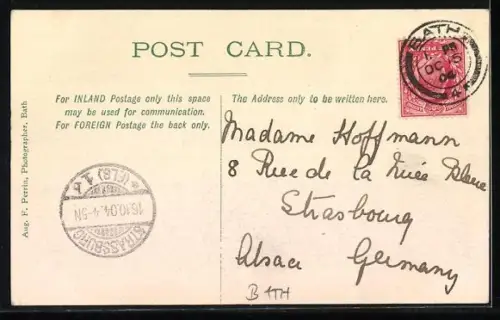 POST CARD.
For INLAND Postage only this space
may be used for communication.
For FOREIGN Postage the back only.
The Address only to be written here.
BATH
OC
04
Madame Hoffmann
8 Rue de la Nuée Bleue
Strasbourg
Alsace Germany
BATH
STRASSBURG
16.10.04. 4-5N
* (ELS) 1
Aug. F. Perrin, Photographer, Bath